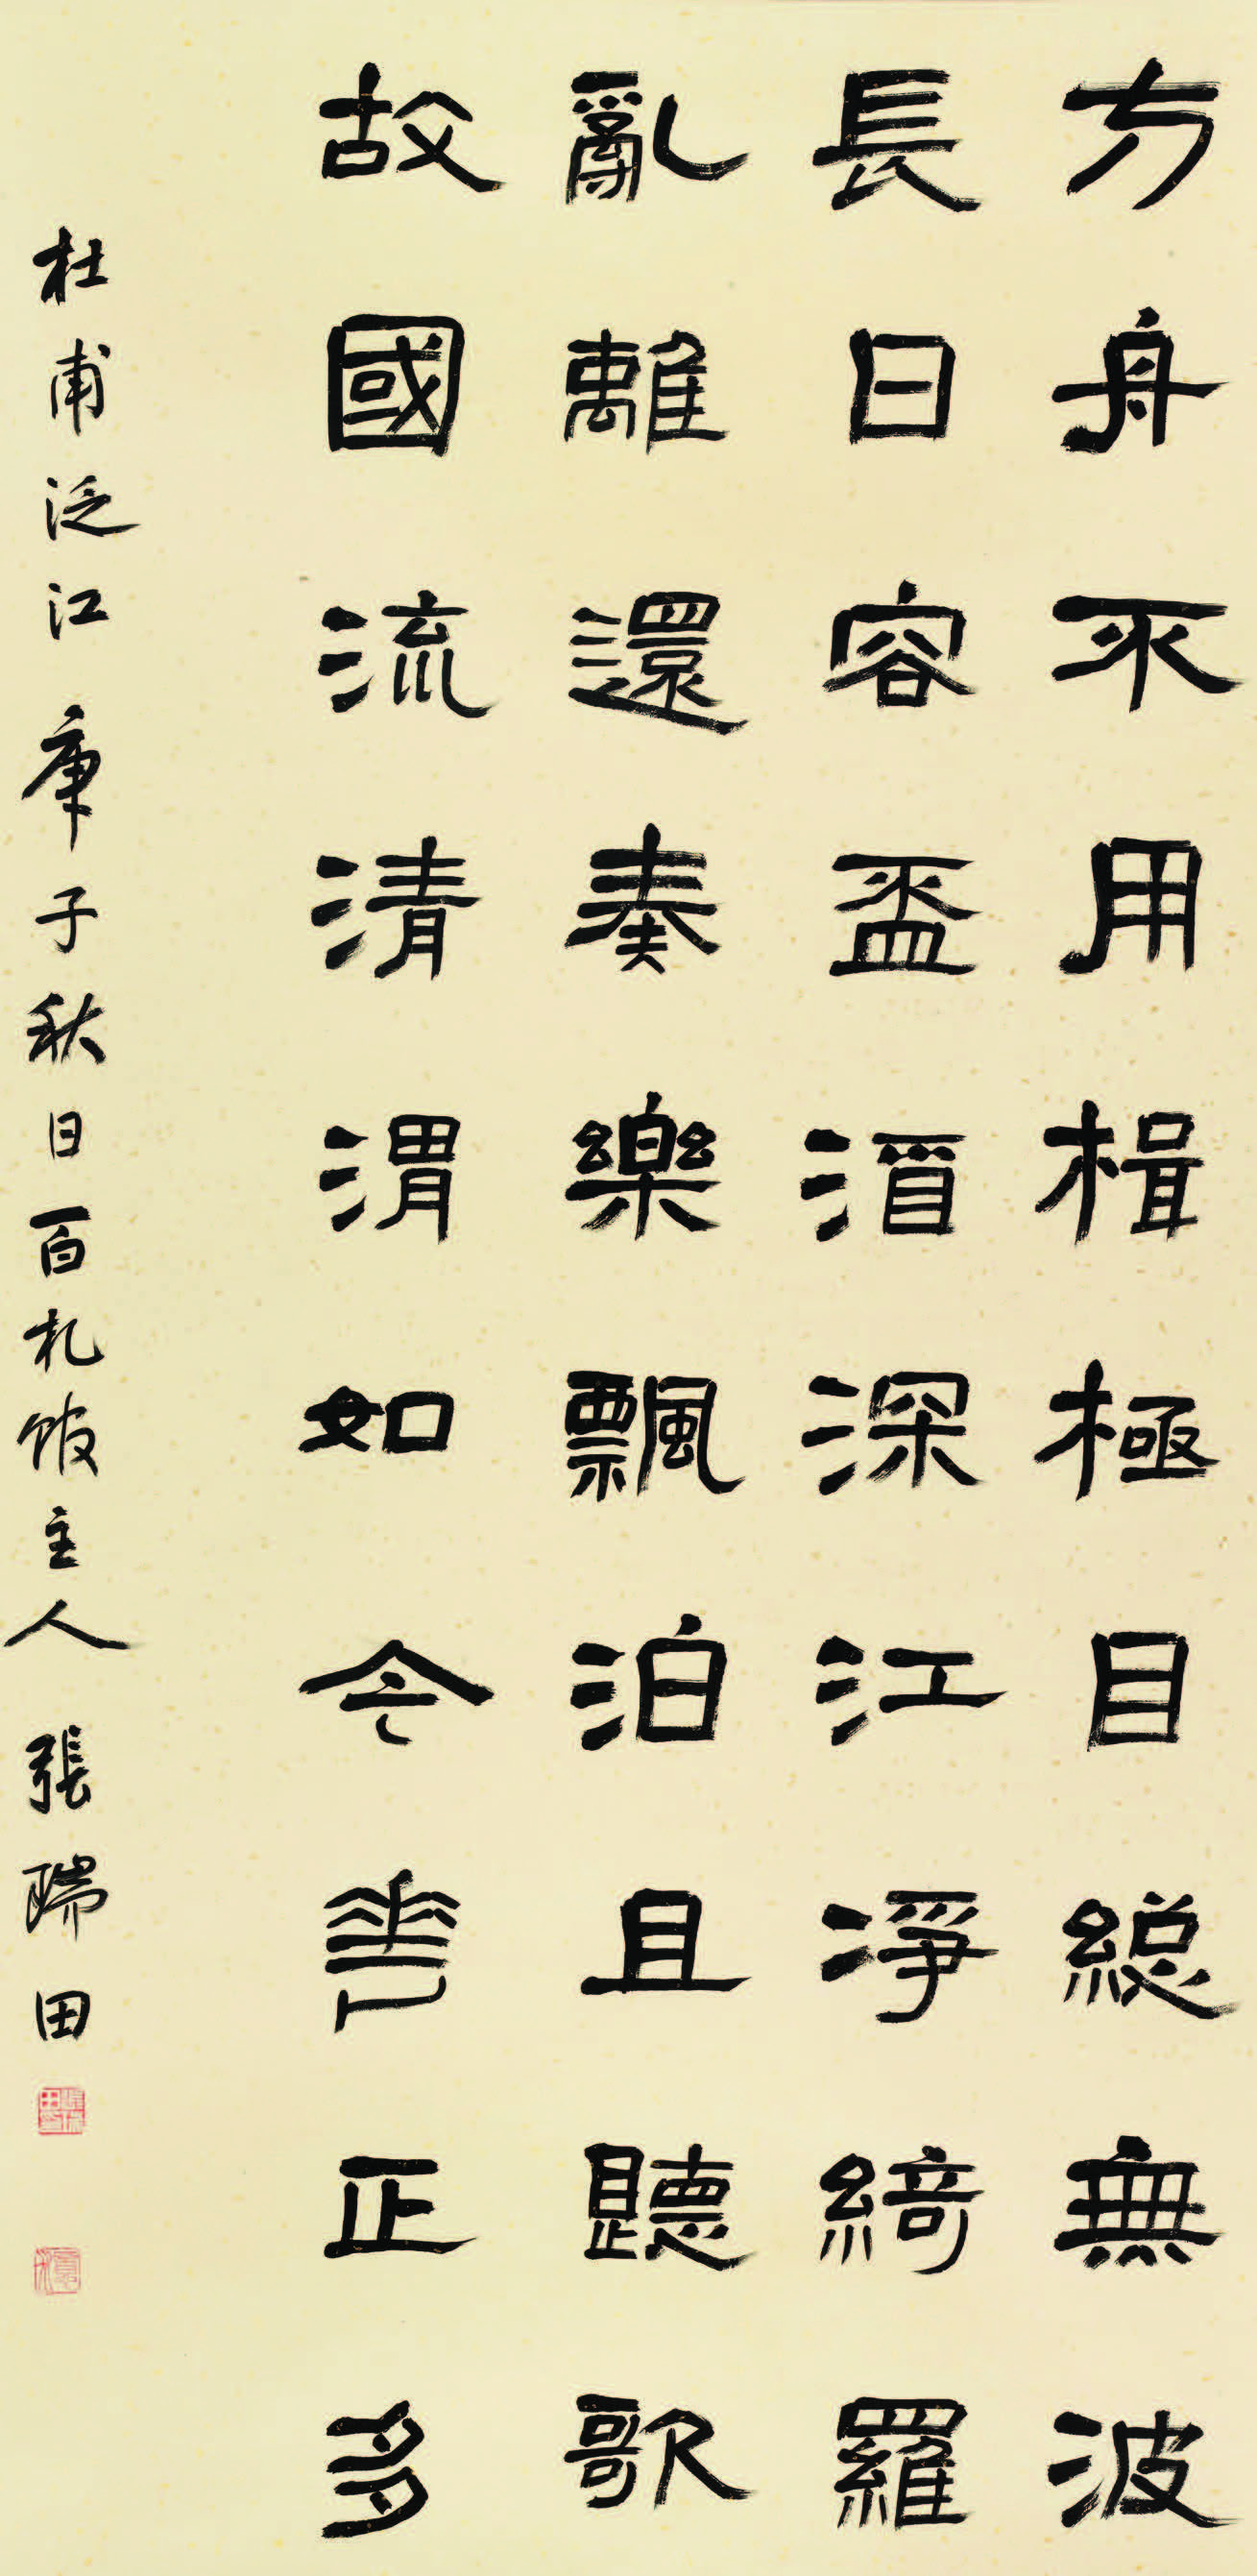 方舟不用楫極目緫無波
長日容盃酒深江凈綺羅
亂離還奏樂飄泊且聽歌
故國流清渭如今華正多
杜甫泛江庚子秋日百札館主人張瑞田